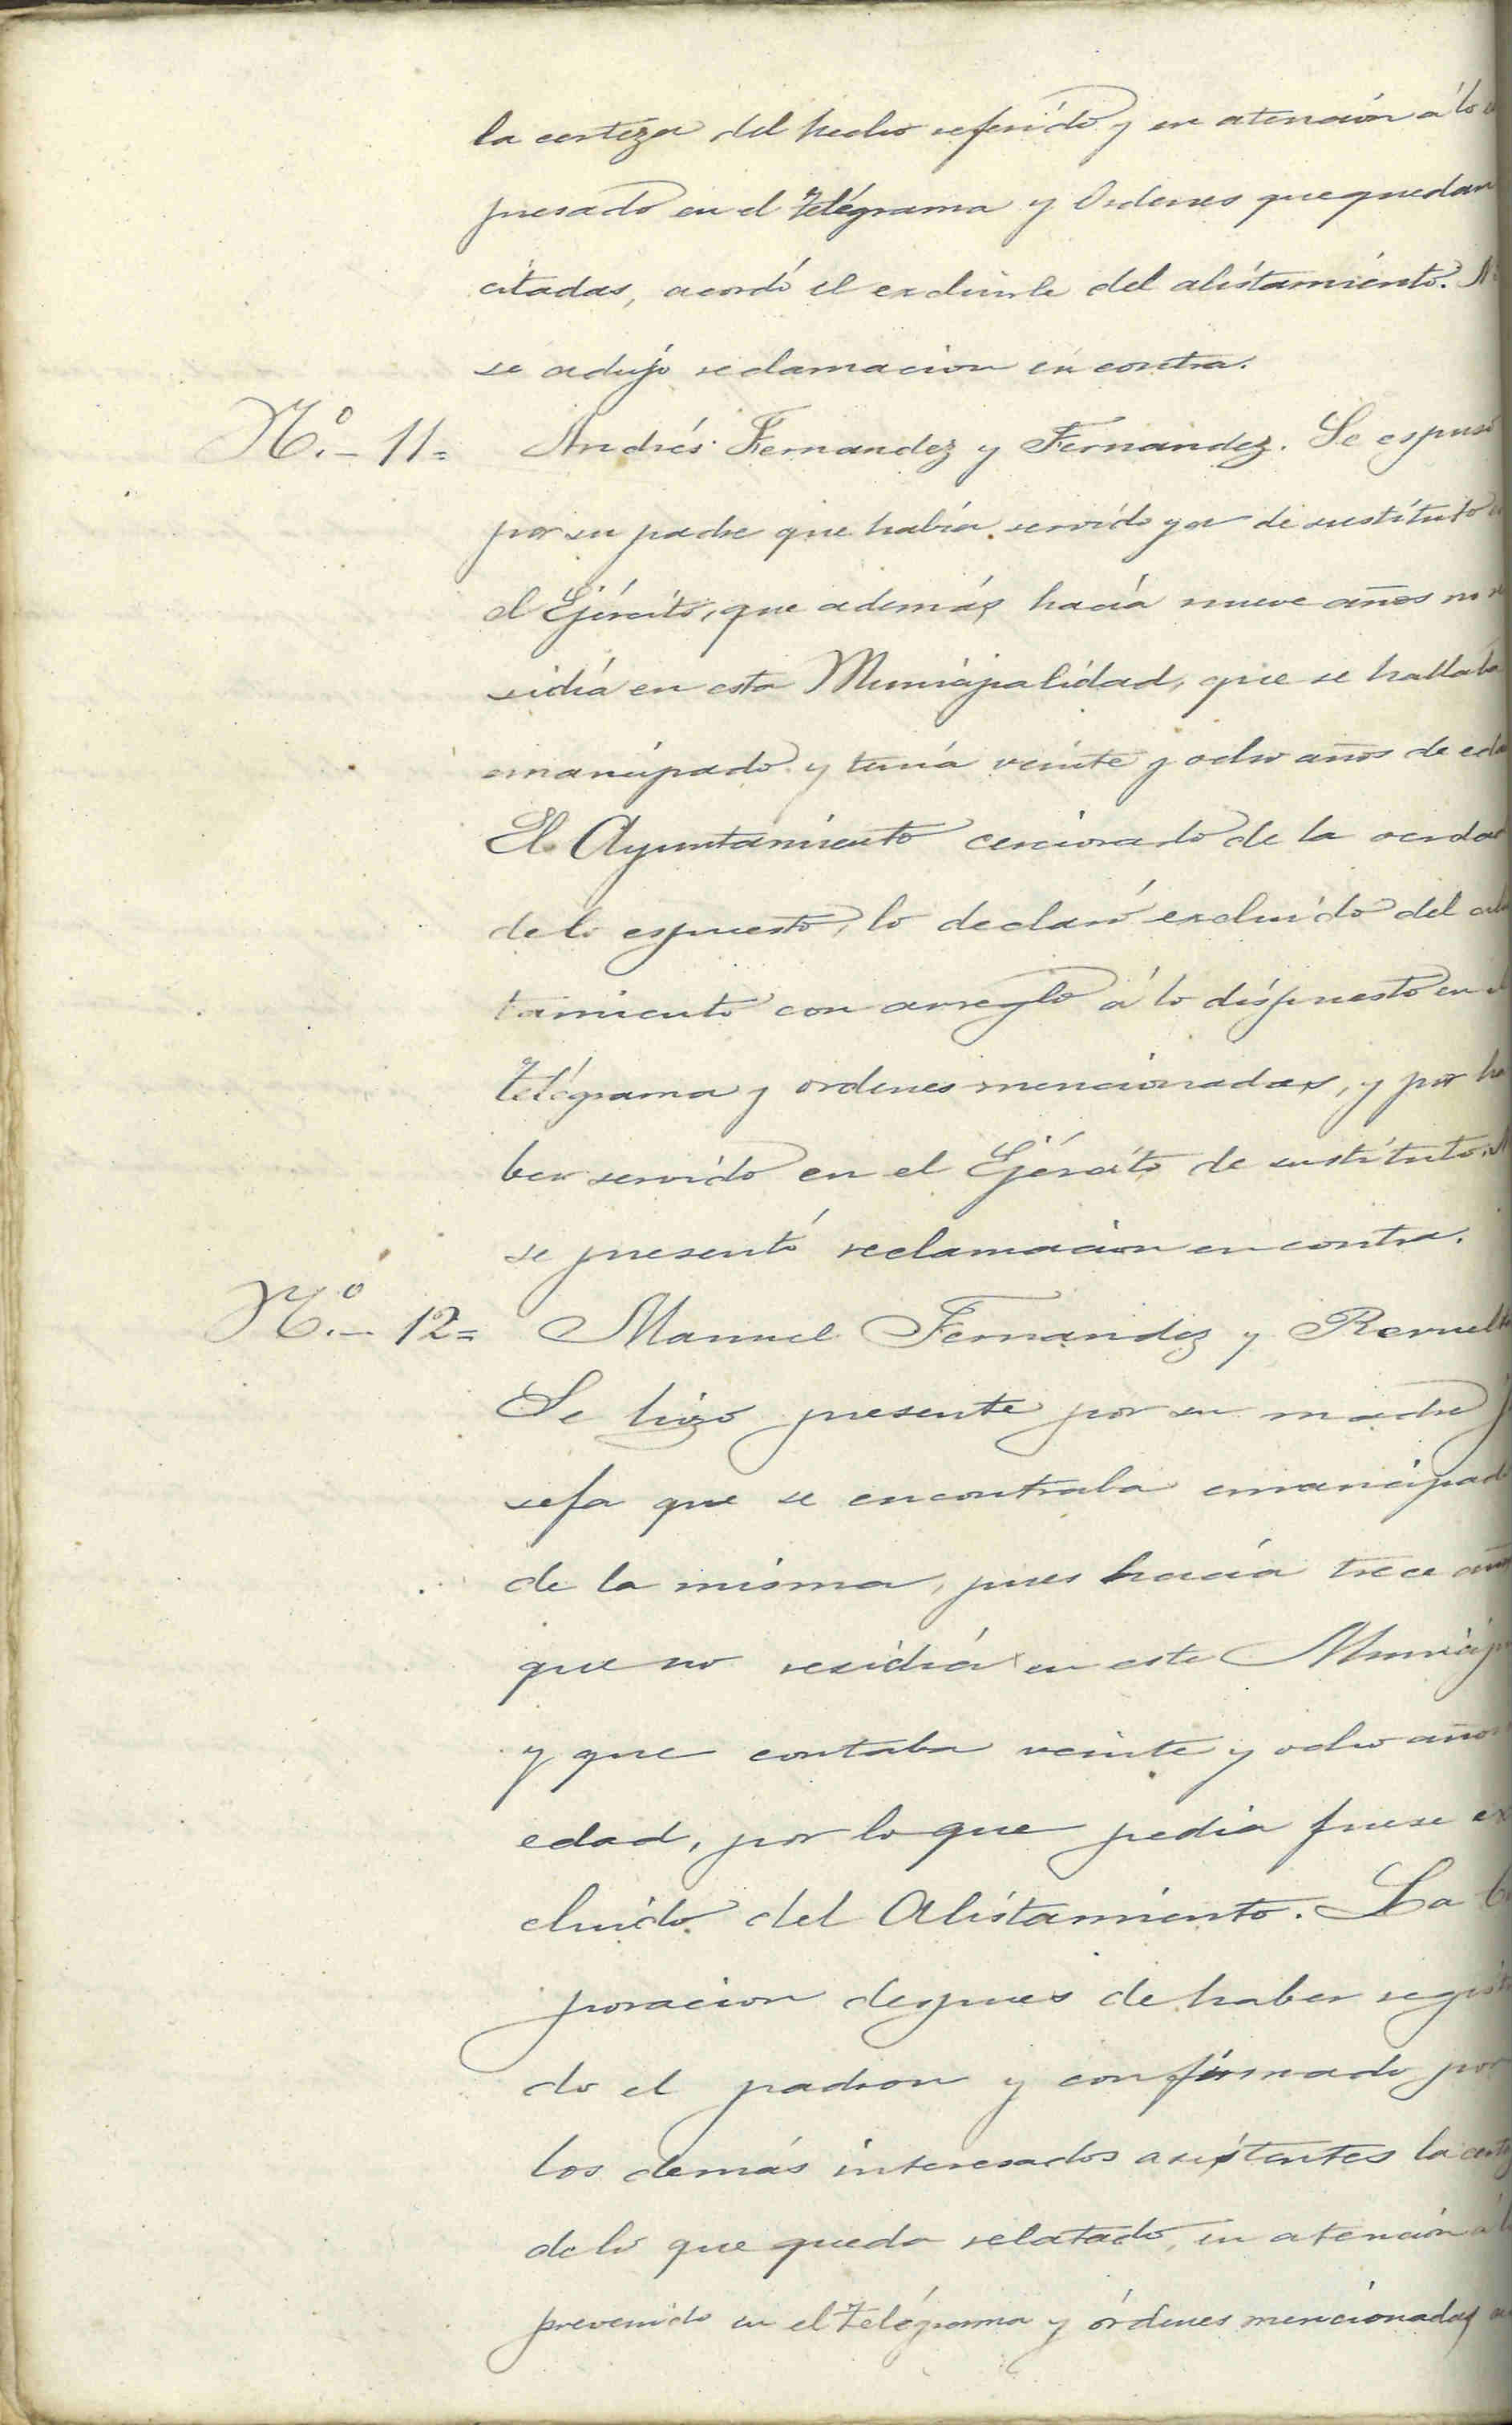 la certeza del hecho referido y en atención á lo
presado en el telégrama y Ordenes que quedan
citadas, acordó el excluirle del alistamiento.
se adujo reclamacion en contra.
N.º - 11 = Andrés Fernandez y Fernandez. Se espuso
por su padre que había servido ya de sustituto
el Ejército, que además hacía nueve años no
sidía en esta Municipalidad, que se hallaba
emancipado y tenía veinte y ocho años de eda
El Ayuntamiento cerciorado de la verdad
de lo espuesto, lo declaró excluido del alis
tamiento con arreglo á lo dispuesto en el
telégrama y ordenes mencionadas, y por ha
ber servido en el Ejército de sustituto.
se presentó reclamacion en contra.
N.º - 12 = Manuel Fernandez y Revuelta
Se hizo presente por su madre Jo
sefa que se encontraba emancipado
de la misma, pues hacía trece años
que no residía en este Municip
y que contaba veinte y ocho años
edad, por lo que pedia fuese ex
cluido del Alistamiento. La Cor
poracion despues de haber registra
do el padron y confirmado por
los demás interesados asistentes la certez
de lo que queda relatado, en atención á lo
prevenido en el telégrama y órdenes mencionadas